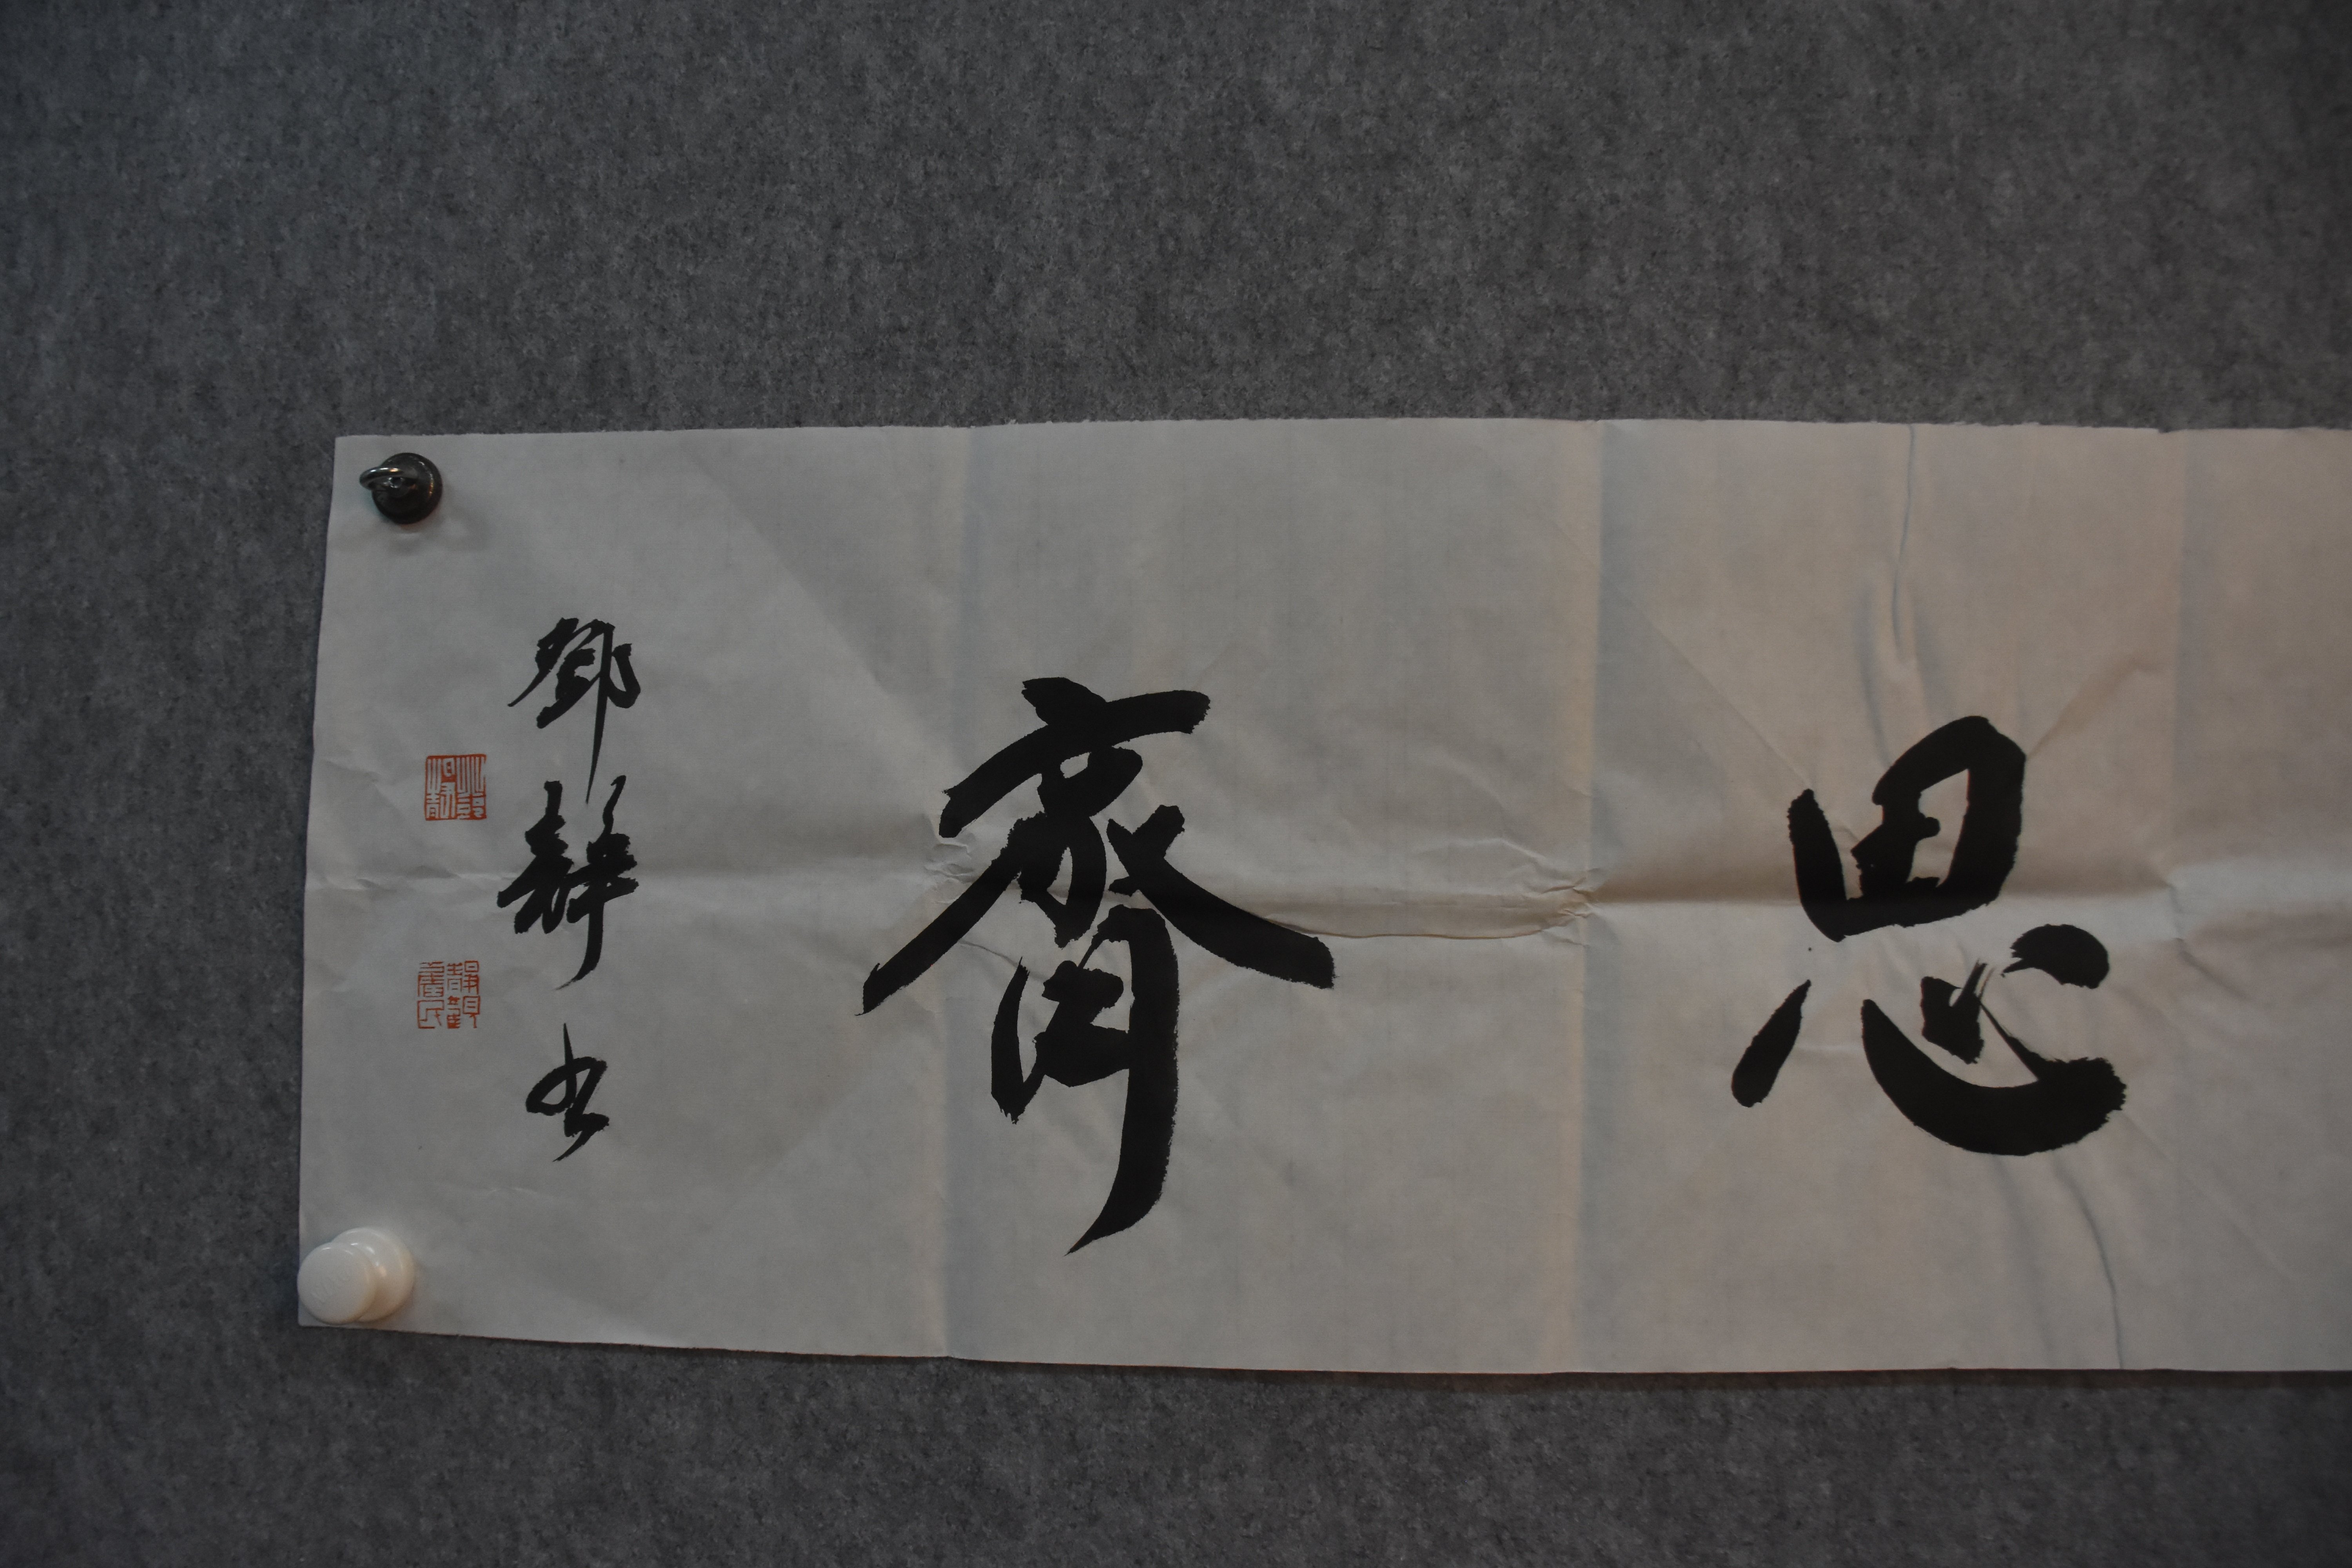 思齊
鄧靜书